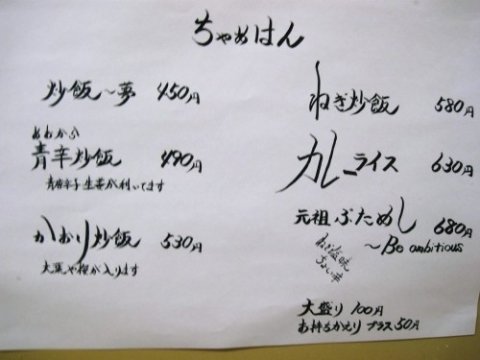 ちゃあはん
炒飯～夢 450円
あおから
青辛炒飯 490円
青唐辛子生姜が利いてます
かおり炒飯 530円
大葉や桜が入ります
ねぎ炒飯 580円
カレーライス 630円
元祖ぶためし 680円
～Bo ambitious
ちょい辛
大盛り 100円
お持ちかえり プラス50円